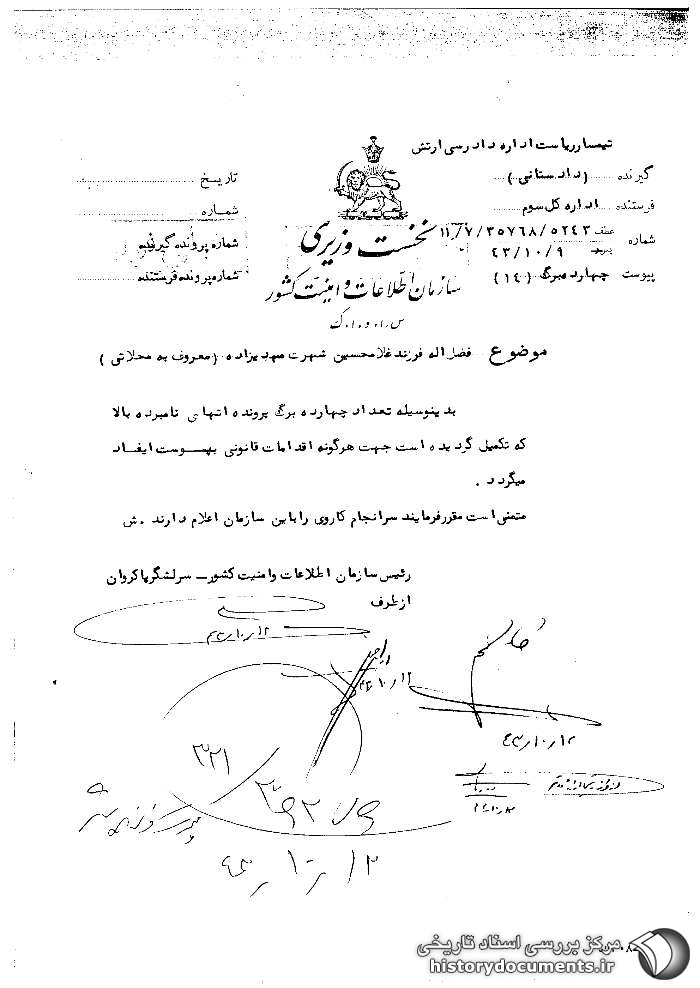 تیمسار ریاست اداره دادرسی ارتش
گیرنده (دادستانی)
فرستنده اداره کل سوم
شماره عطف ۱۱/۷/۳۵۷۶۸/۵۲۴۳
۴۳/۱۰/۹
پیوست چهارده برگ (۱۴)
تاریخ
شماره
شماره پرونده گیرنده
شماره پرونده فرستنده
نخست وزیری
سازمان اطلاعات و امنیت کشور
س.ا.و.ا.ک
موضوع فضل اله فرزند غلامحسین شهرت مهدیزاده (معروف به محلاتی)
بدینوسیله تعداد چهارده برگ پرونده اتهامی نامبرده بالا
که تکمیل گردیده است جهت هرگونه اقدامات قانونی بپیوست ایفاد
میگردد .
متمنی است مقرر فرمایند سرانجام کار وی را باین سازمان اعلام دارند .ش
رئیس سازمان اطلاعات و امنیت کشور - سرلشگر پاکروان
از طرف
۴۳/۱۰/۱۲
۴۳/۱۰/۱۲
۴۳/۱۰/۱۲
۳۲۱
۴۳/۱۰/۱۲
مرکز بررسی اسناد تاریخی
historydocuments.ir